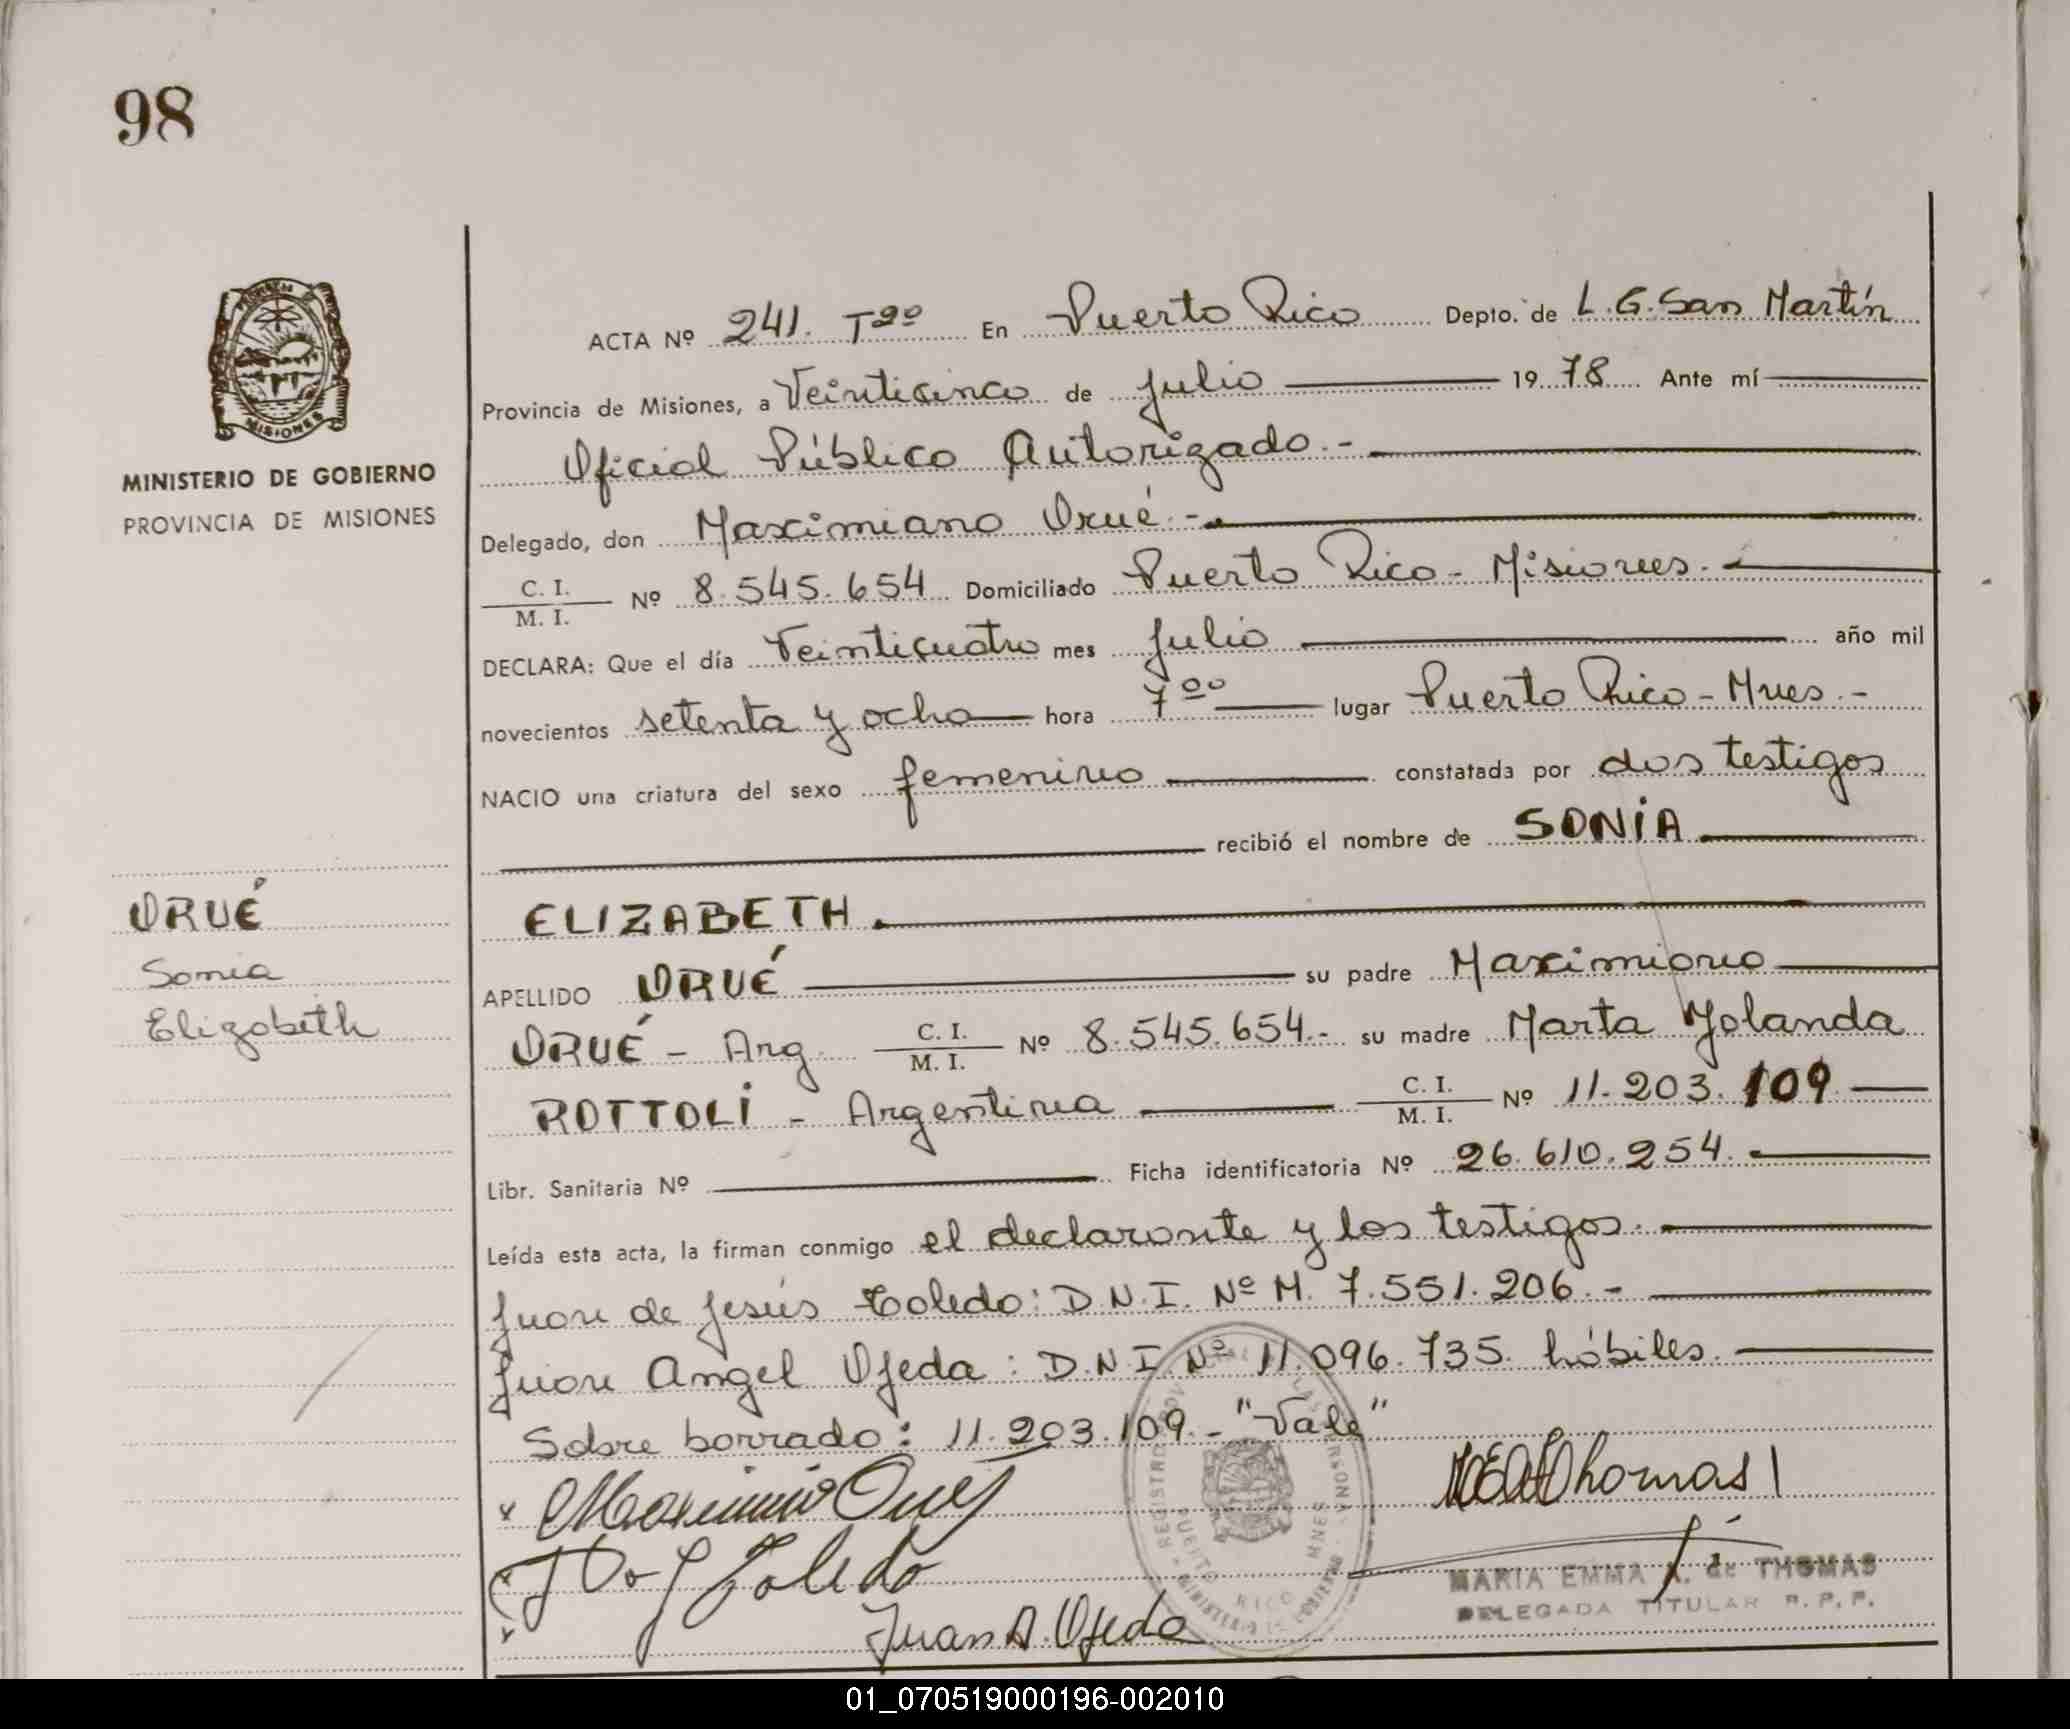 98
MISIONES
MINISTERIO DE GOBIERNO
PROVINCIA DE MISIONES
ACTA Nº 241. Tº2º En Puerto Rico Depto. de L.G. San Martín
Provincia de Misiones, a Veinticinco de Julio 19 78 Ante mí
Oficial Público Autorizado.-
Delegado, don Maximiano Orué.-
C. I. / M. I. Nº 8.545.654 Domiciliado Puerto Rico - Misiones.-
DECLARA: Que el día Veinticuatro mes Julio año mil
novecientos setenta y ocho hora 7 00 lugar Puerto Rico - Mnes.-
NACIO una criatura del sexo femenino constatada por dos testigos
recibió el nombre de SONIA
ELIZABETH.
APELLIDO ORUÉ su padre Maximiano
ORUÉ - Arg. C. I. / M. I. Nº 8.545.654.- su madre Marta Yolanda
ROTTOLI - Argentina C. I. / M. I. Nº 11.203.109
Libr. Sanitaria Nº Ficha identificatoria Nº 26.610.254.
Leída esta acta, la firman conmigo el declarante y los testigos.
Juan de Jesús Toledo: D.N.I. Nº M. 7.551.206.-
Juan Angel Ojeda: D.N.I. Nº 11.096.735. hábiles.
Sobre borrado: 11.203.109.- "Vale"
ORUÉ
Sonia
Elizabeth
Toledo
Juan A. Ojeda
Thomas
MARIA EMMA de THOMAS
DELEGADA TITULAR R. P. P.
PUERTO RICO MNES
01_070519000196-002010